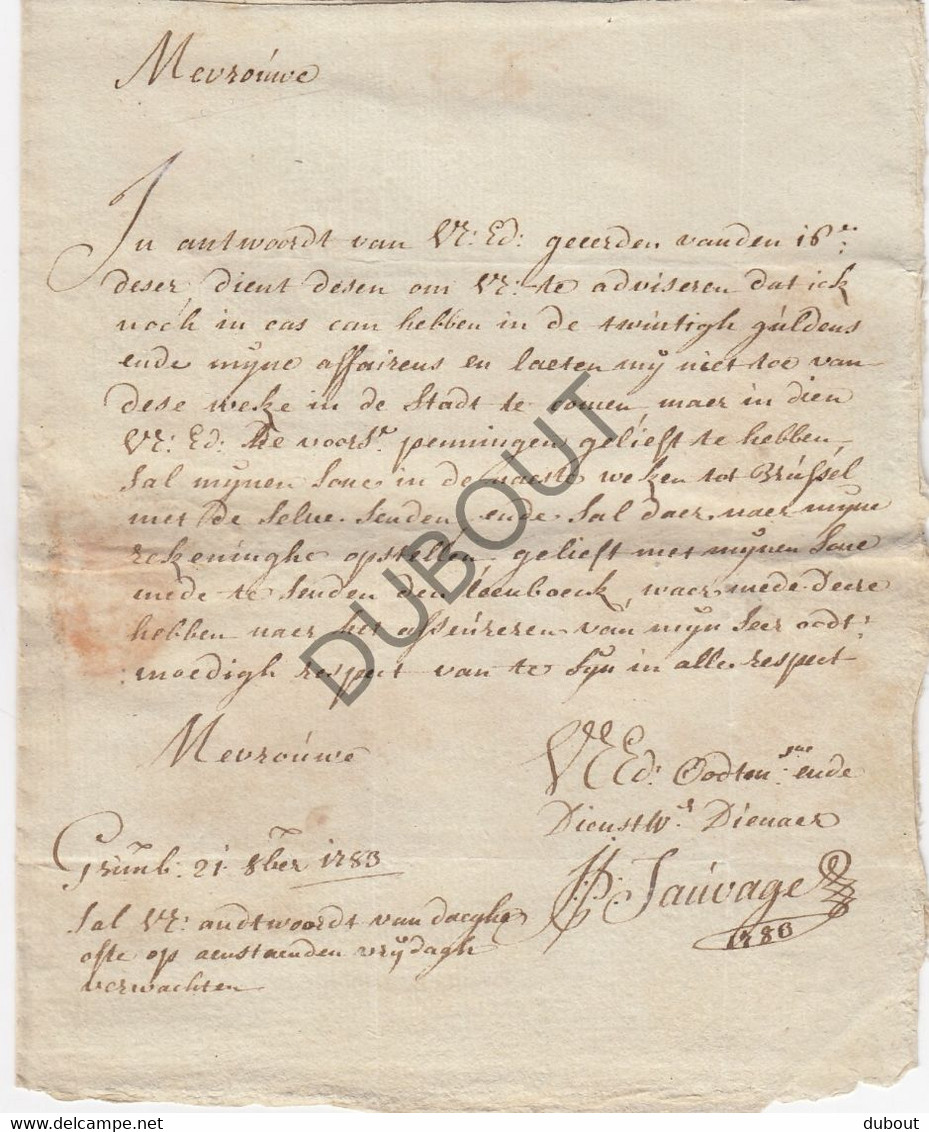 Mevrouwe
In antwoordt van VE: Ed: geeerden vanden 18en:
deser dient desen om VE: te adviseren dat ick
noch in cas can hebben in de twintigh guldens
ende myne affairens en laeten my niet toe van
dese weke in de Stadt te comen, maer in dien
VE: Ed: de voorsr. penningen gelieft te hebben,
sal mynen sone in de naeste weken tot Brussel
met de selve senden ende sal daer naer myne
rekeninghe opstellen, gelieft met mynen sone
mede te senden den boeck, waer mede d'eere
hebben naer het asseureren van myn seer oodt:
moedigh respect van te syn in alle respect
Mevrouwe
VE Ed: Oodtm: sten ende
Dienstw: r Dienaer
JP: Sauvage
1783
Grimb: 21 8ber 1783
sal VE: andtwoordt van daeghe
ofte op aenstaenden vrydagh
verwachten
DUBOUT
dubout